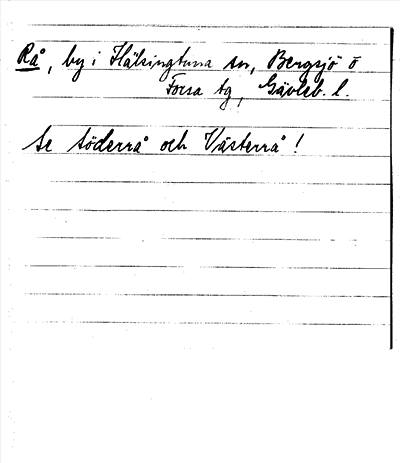 Rå, by i Hälsingtuna sn, Bergsjö o
Forsa tg, Gävleb. l.
Se Söderrå och Västerrå!